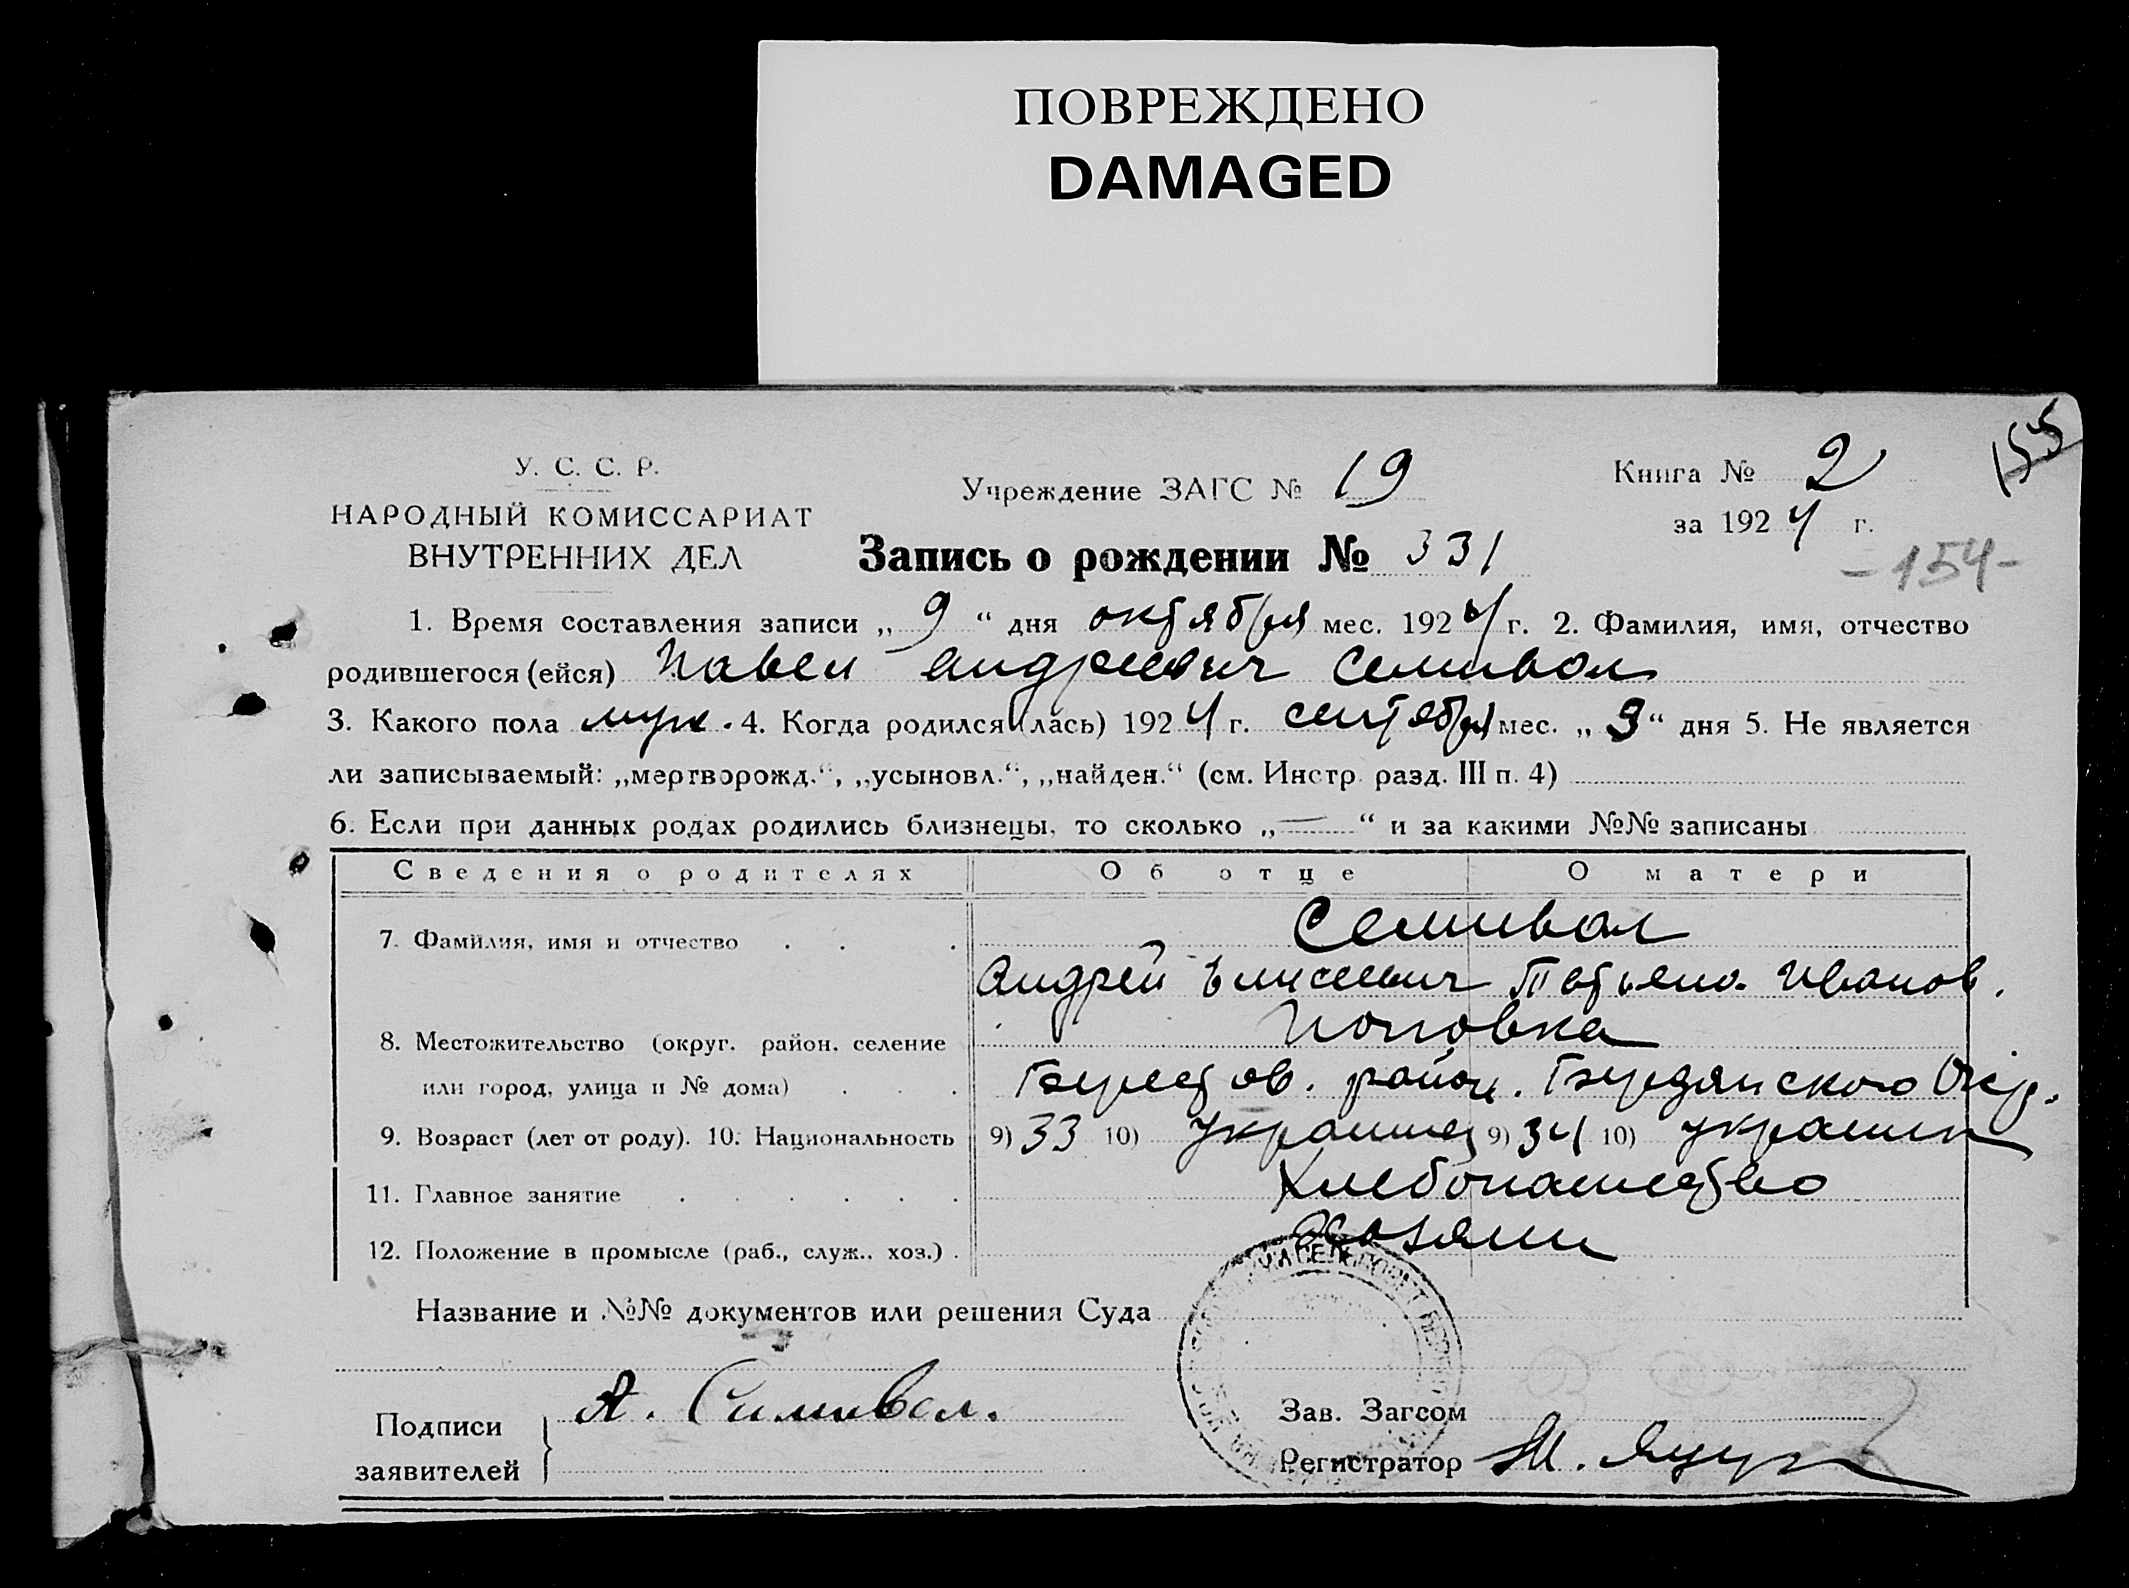 ПОВРЕЖДЕНО
DAMAGED
155
У. С. С. Р.
НАРОДНЫЙ КОМИССАРИАТ
ВНУТРЕННИХ ДЕЛ
Учреждение ЗАГС № 19
Книга № 2
за 1924 г.
Запись о рождении № 331
-154-
1. Время составления записи „9“ дня октября мес. 1924 г. 2. Фамилия, имя, отчество
родившегося (ейся) Павел Андреевич Семивол
3. Какого пола муж. 4. Когда родился (лась) 1924 г. сентября мес. „9“ дня 5. Не является
ли записываемый: „мертворожд.“, „усыновл.“, „найден.“ (см. Инстр. разд. III п. 4)
6. Если при данных родах родились близнецы, то сколько „—“ и за какими №№ записаны
Сведения о родителях Об отце О матери
7. Фамилия, имя и отчество . . . Семивол
Андрей Елисеевич Татьяна Иванов.
8. Местожительство (округ. район. селение Поповка
или город, улица и № дома) . . . Берестов. район. Бердянского Окр.
9. Возраст (лет от роду). 10. Национальность 9) 33 10) украинец 9) 34 10) украинк
11. Главное занятие . . . . . . Хлебопашество
12. Положение в промысле (раб., служ., хоз.) . Хозяин
Название и №№ документов или решения Суда
Подписи
заявителей
А. Симивол.
Зав. Загсом
Регистратор